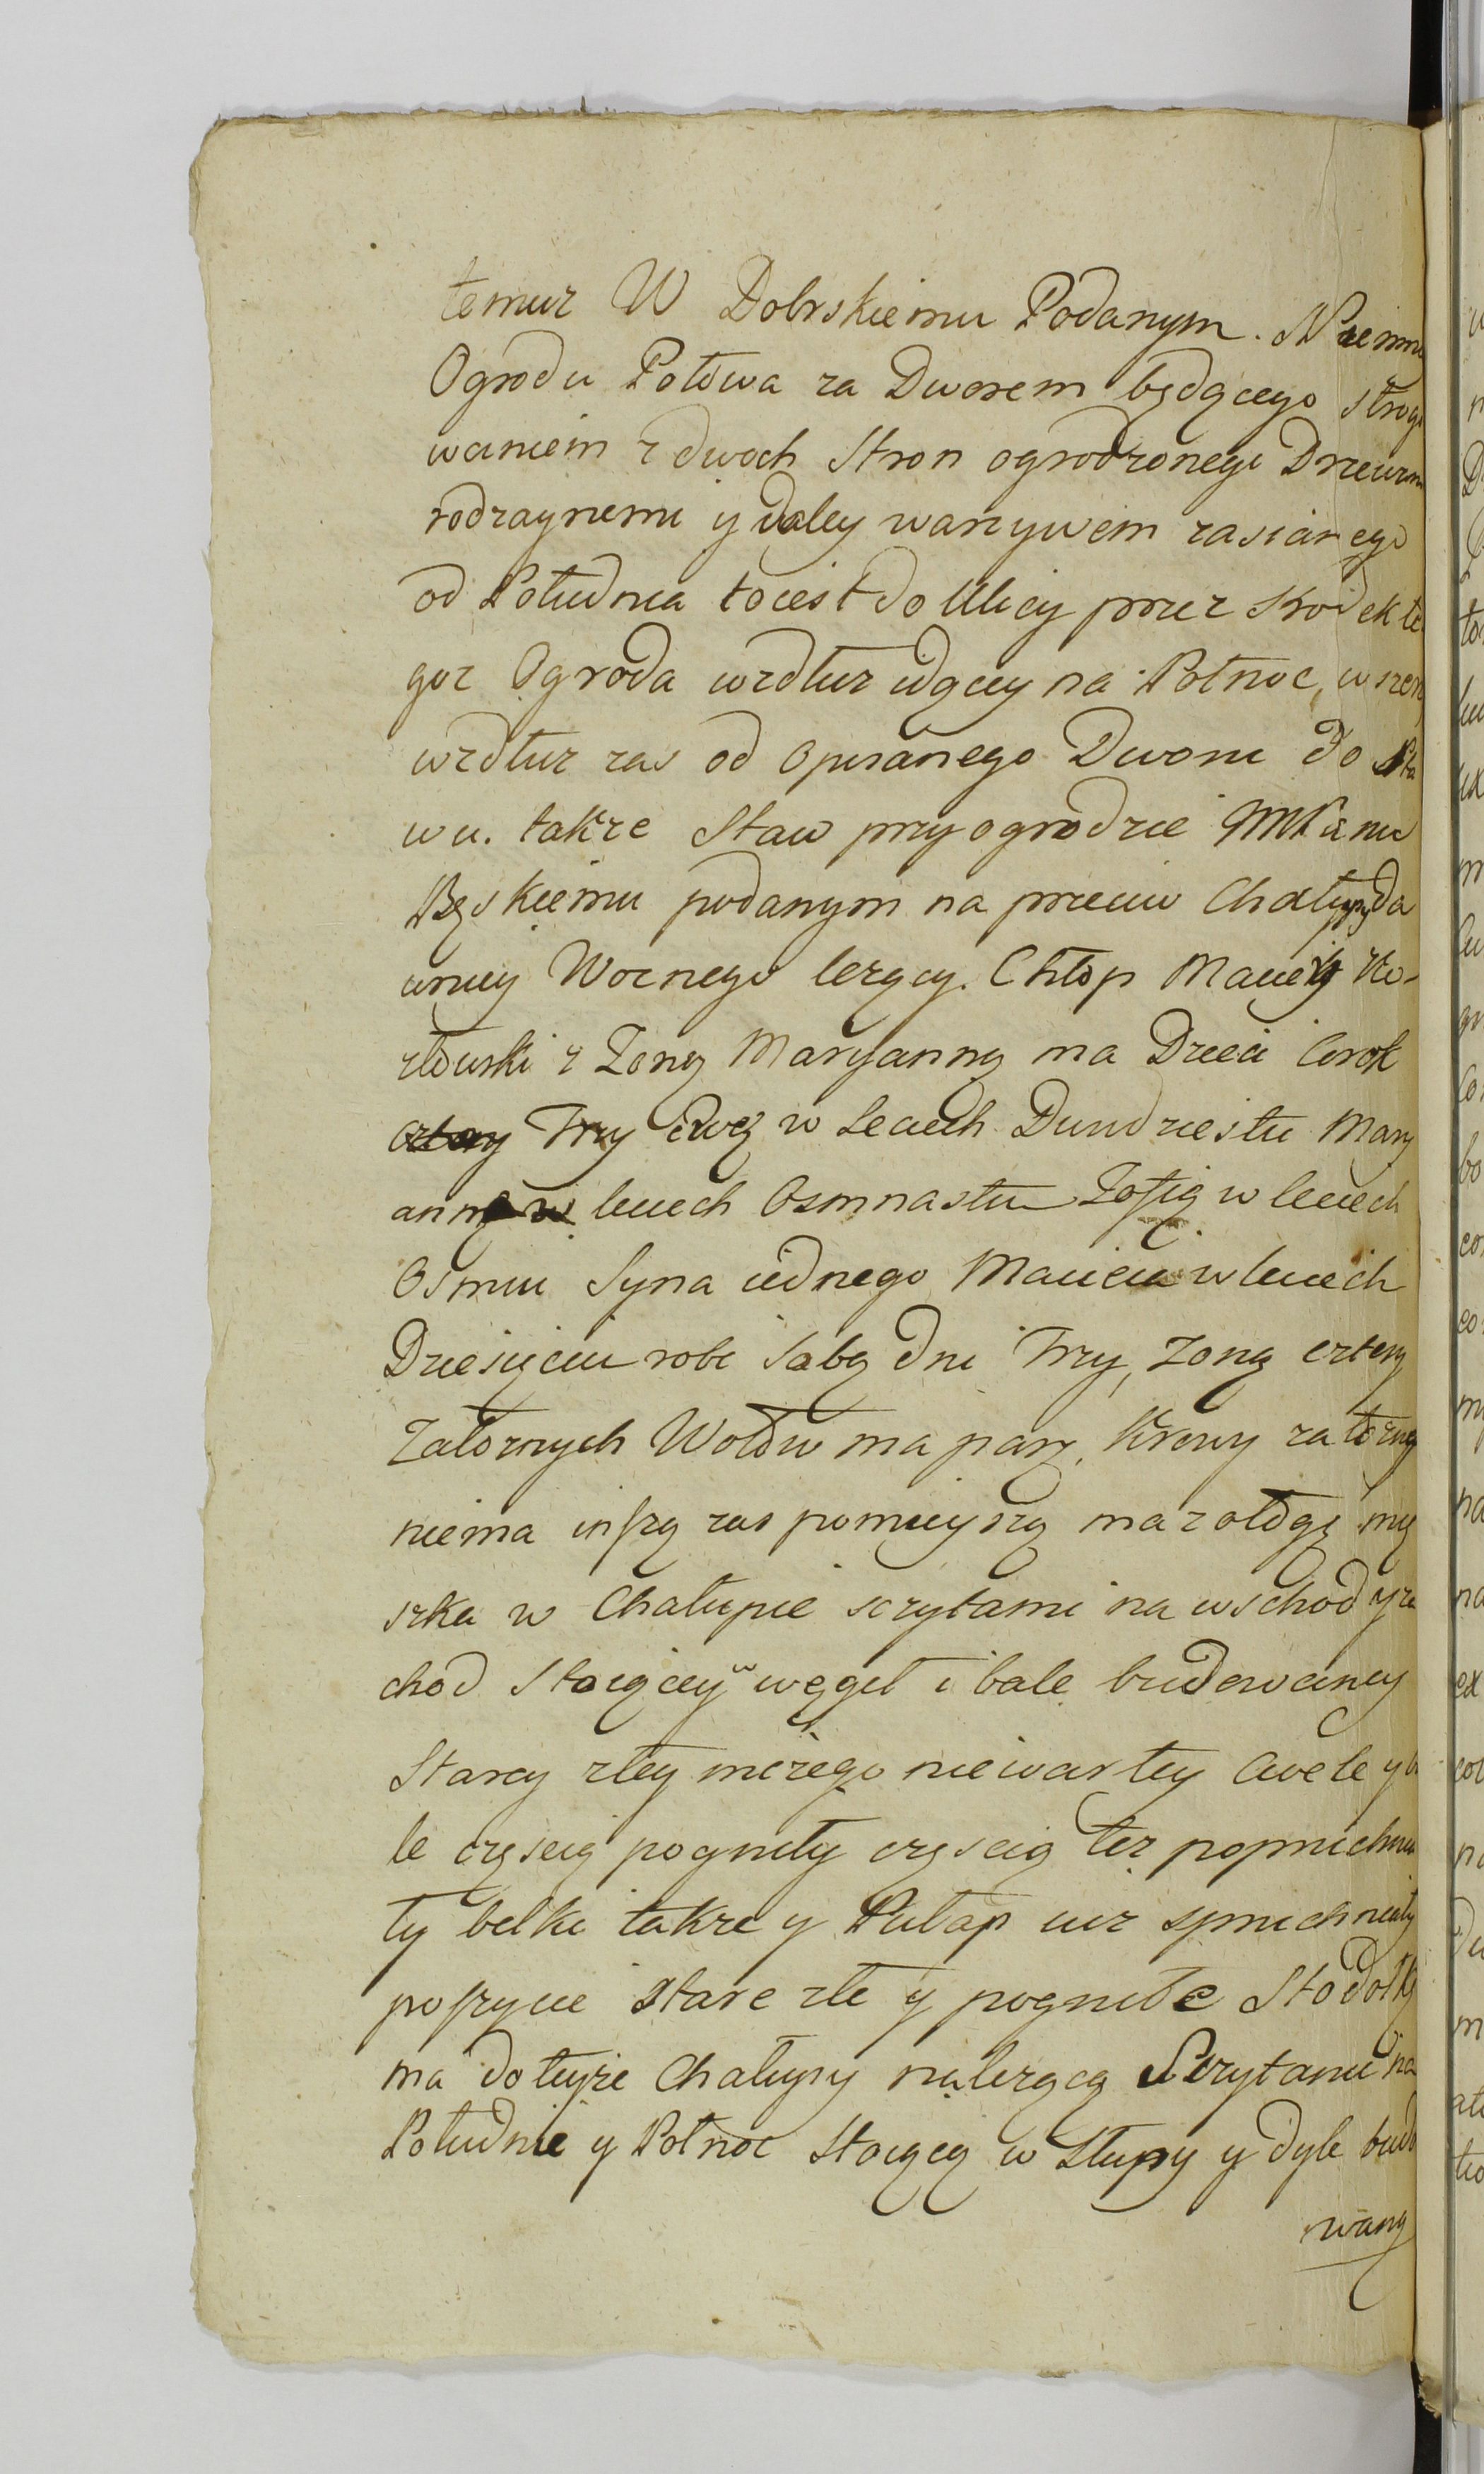 temuz W Dobrskiemu Podanym.
Ogrodu Połowa za Dworem będącego
waniem z dwoch Stron ogrodzonego Drzewem
rodzaynemi y daley warzywem zasianego
od Południa toiest do Ulicy przez srodek te
goz Ogroda wzdłuz idącey na Połnoc, w szerz
wzdłuz zas od opisanego Dworu do Sta
wu. także Staw przy ogrodzie JMPanu
Bęskiemu podanym na przeciw Chałupy da
wney Woznego lezący. Chłop Maciey Ko-
złowski z Zoną Maryanną ma Dzieci Corok
Trzy Ewę w Leciech Dwudziestu Mary
annę w leciech Osmnastu Zofią w leciech
Osmiu Syna iednego Macieia w leciech
Dziesięciu robi Sabą dni Trzy, Zoną cztery
Załoznych Wołow ma parę, Krowy załozney
niema inszą zas pomnieyszą ma załogę mię
szka w Chałupie sczytami na wschod y za
chod Stoiącey w węgeł i bale budowaney
Starey złey niczego niewartey Cwele y ba
le częscią pogniły częscią tez poprochnia
ły belki także y Pułap iuz sprochniały
poszycie stare złe y pogniłe Stodołkę
ma do teyże Chałupy nalezącą Sczytami na
Południe y Połnoc Stoiącą w Słupy y dyle budo
waną